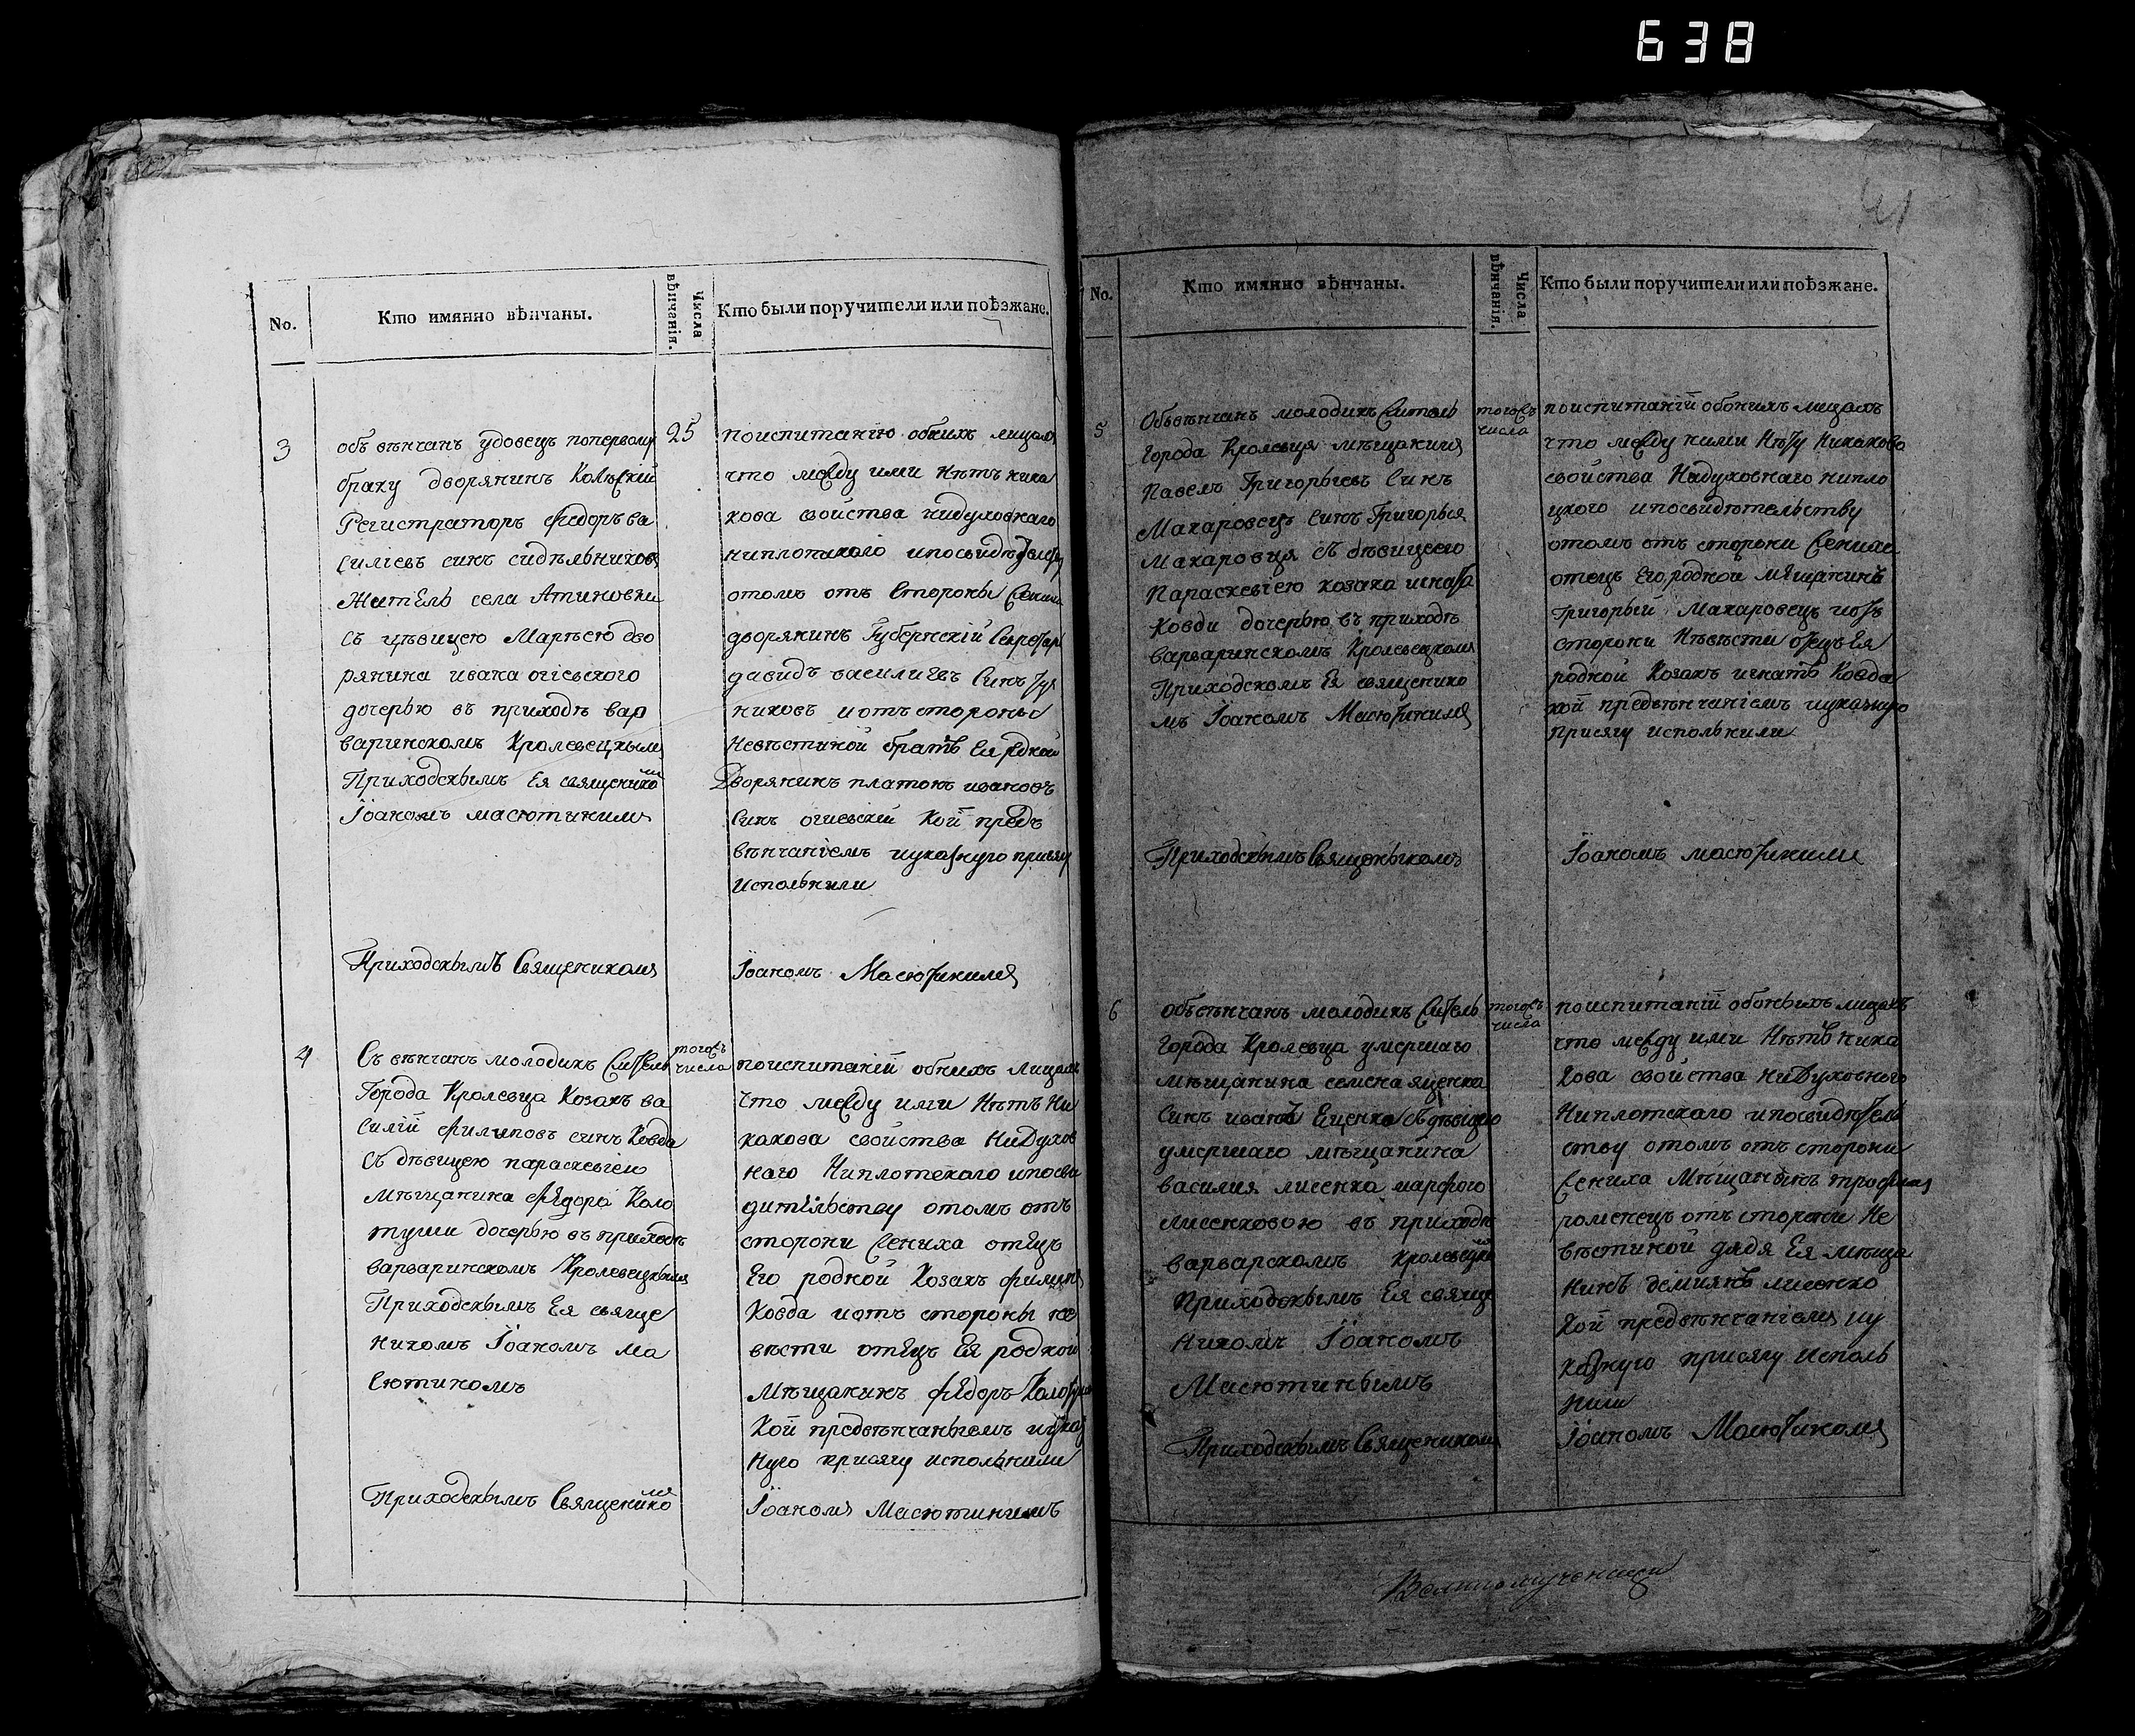 638
41
No.
Кто имянно вѣнчаны.
Числа вѣнчанія.
Кто были поручители или поѣзжане.
3
объ вѣнчанъ удовецъ поперволу
браку дворянинъ Колѣскій
Регистраторъ Федоръ ва
силіевъ синъ сидѣльниковъ
Житель села Атиновки
съ цѣвицею Марѣею дво
рянина ивана огіевского
дочерью въ приходѣ вар
варинскомъ Кролевецкым
Приходскымъ Ея священико
м
Іоаномъ масютинимъ
25
поиспитанію обоихъ лицамъ
что между ими нѣтъ ника
кова свойства нидуховнаго
ниплотскаго ипосвидѣтельству
отомъ отъ Стороны Жениха
дворянинъ Губернскій Секретарь
давидъ василиевъ Синъ
никовъ иотъ стороны
Невѣстиной братъ Ея родной
Дворянинъ платонъ ивановъ
Синъ огиевскій Кой предъ
вѣнчаніемъ иуказную присягу
исполнили
Приходскымъ Священикомъ
Іоаномъ Масютинимъ
4
Съ вѣнчанъ молодикъ Житель
Города Кролевца Козакъ ва
силій Филиповъ синъ Ковда
Съ дѣвицею параскевіею
Мѣщанина Федора Коло
туши дочерью въ приходѣ
варваринскомъ Кролевецкымъ
Приходскымъ Ея свяще
никомъ Іоаномъ Ма
сютиномъ
тогожъ
числа
поиспитаній обоихъ лицамъ
что между ими Нѣтъ Ни
какова свойства НиДухов
наго Ниплотскаго ипосви
дителъству отомъ отъ
стороны Жениха отецъ
Его родной Козакъ филипъ
Ковда иотъ стороны не
вѣсти отецъ Ея родной
Мѣщанинъ федоръ Колотуша
Кой предвѣнчаньемъ иуказ
Ную присягу исполнили
Приходскымъ Священико
м
Іоаномъ Масютинимъ
No.
Кто имянно вѣнчаны.
Числа вѣнчанія.
Кто были поручители или поѣзжане.
5
Обвѣнчанъ молодикъ Житель
Города Кролевца мѣщанинъ
Павелъ Григорьевъ Синъ
Макаровецъ синъ Григорья
Макаровця съ дѣвицею
Параскевіею козака игната
Ковди дочерью въ приходѣ
варваринскомъ Кролевецкомъ
Приходскомъ Ея священико
мъ Іоаномъ Масютинимъ
тогожъ
числа
поиспитаній обоихъ лицамъ
что между ними Нѣту Никакова
свойства Нидуховнаго нипло
цкого ипосвидѣтельству
отомъ отъ стороны Жениха
отецъ Его родной мѣщанинъ
григорьй Макаровецъ иотъ
стороны Нѣвѣсти отецъ Ея
родной Козакъ игнатъ Ковда
кой предвѣнчаніемъ иуказную
присягу исполнили
Приходскымъ Священыкомъ
Іоаномъ масютинимъ
6
Обвѣнчанъ молодикъ Житель
Города Кролевца умершаго
мѣщанина семена яценка
Синъ иванъ Еценко Съ дѣвицею
умершаго мѣщанина
василия лисенка марфого
лисенковою въ приходѣ
варварскомъ Кролевецко
м
Приходскымъ Ея свяще
никомъ Іоаномъ
Масютинымъ
тогожъ
числа
поиспитаній обоньихъ лицамъ
что между ими Нѣтъ Ника
Кова свойства НиДуховного
Ниплотскаго ипосвидѣтель
ству отомъ отъ стороны
Жениха Мѣщанынъ трофимъ
роменецъ отъ стороны Не
вѣстиной дядя Ея мѣща
нинъ демиянъ лисенко
Кой предвѣнчаніемъ иу
казную присягу Исполь
нили
Приходскымъ Священикомъ
Іоаномъ Масютиномъ
Великомученици